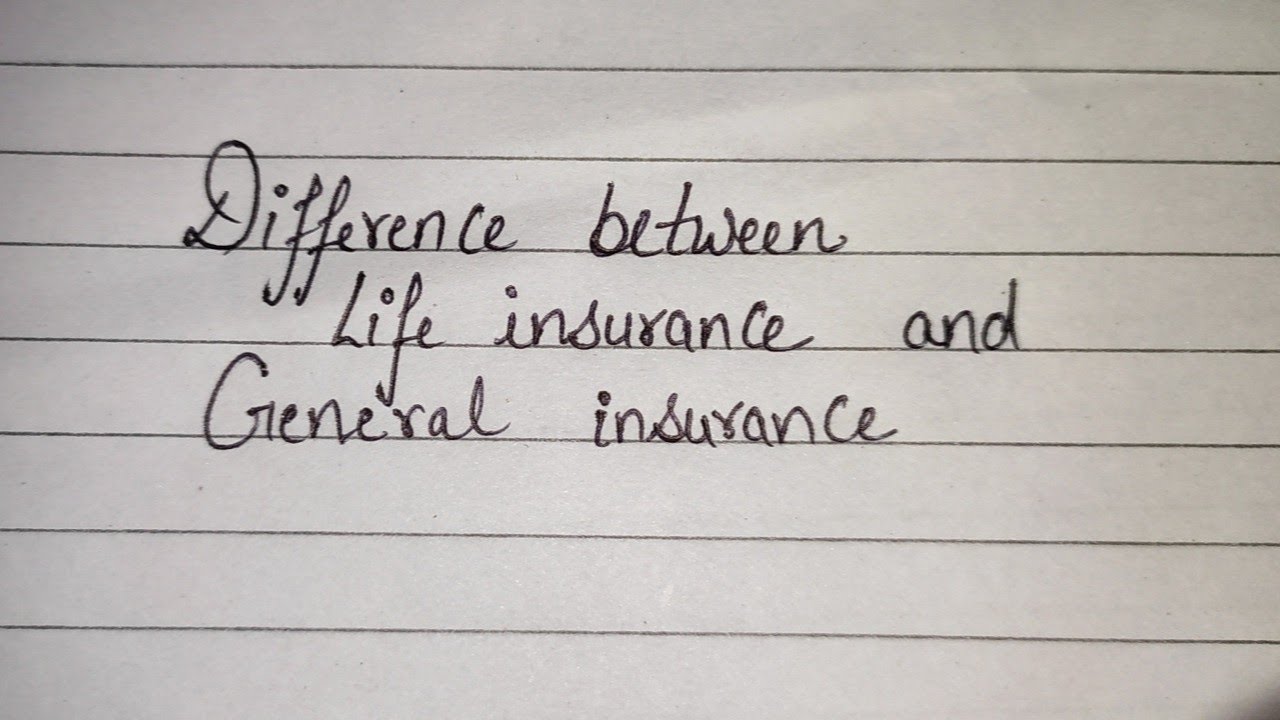 Difference between
Life insurance and
General insurance